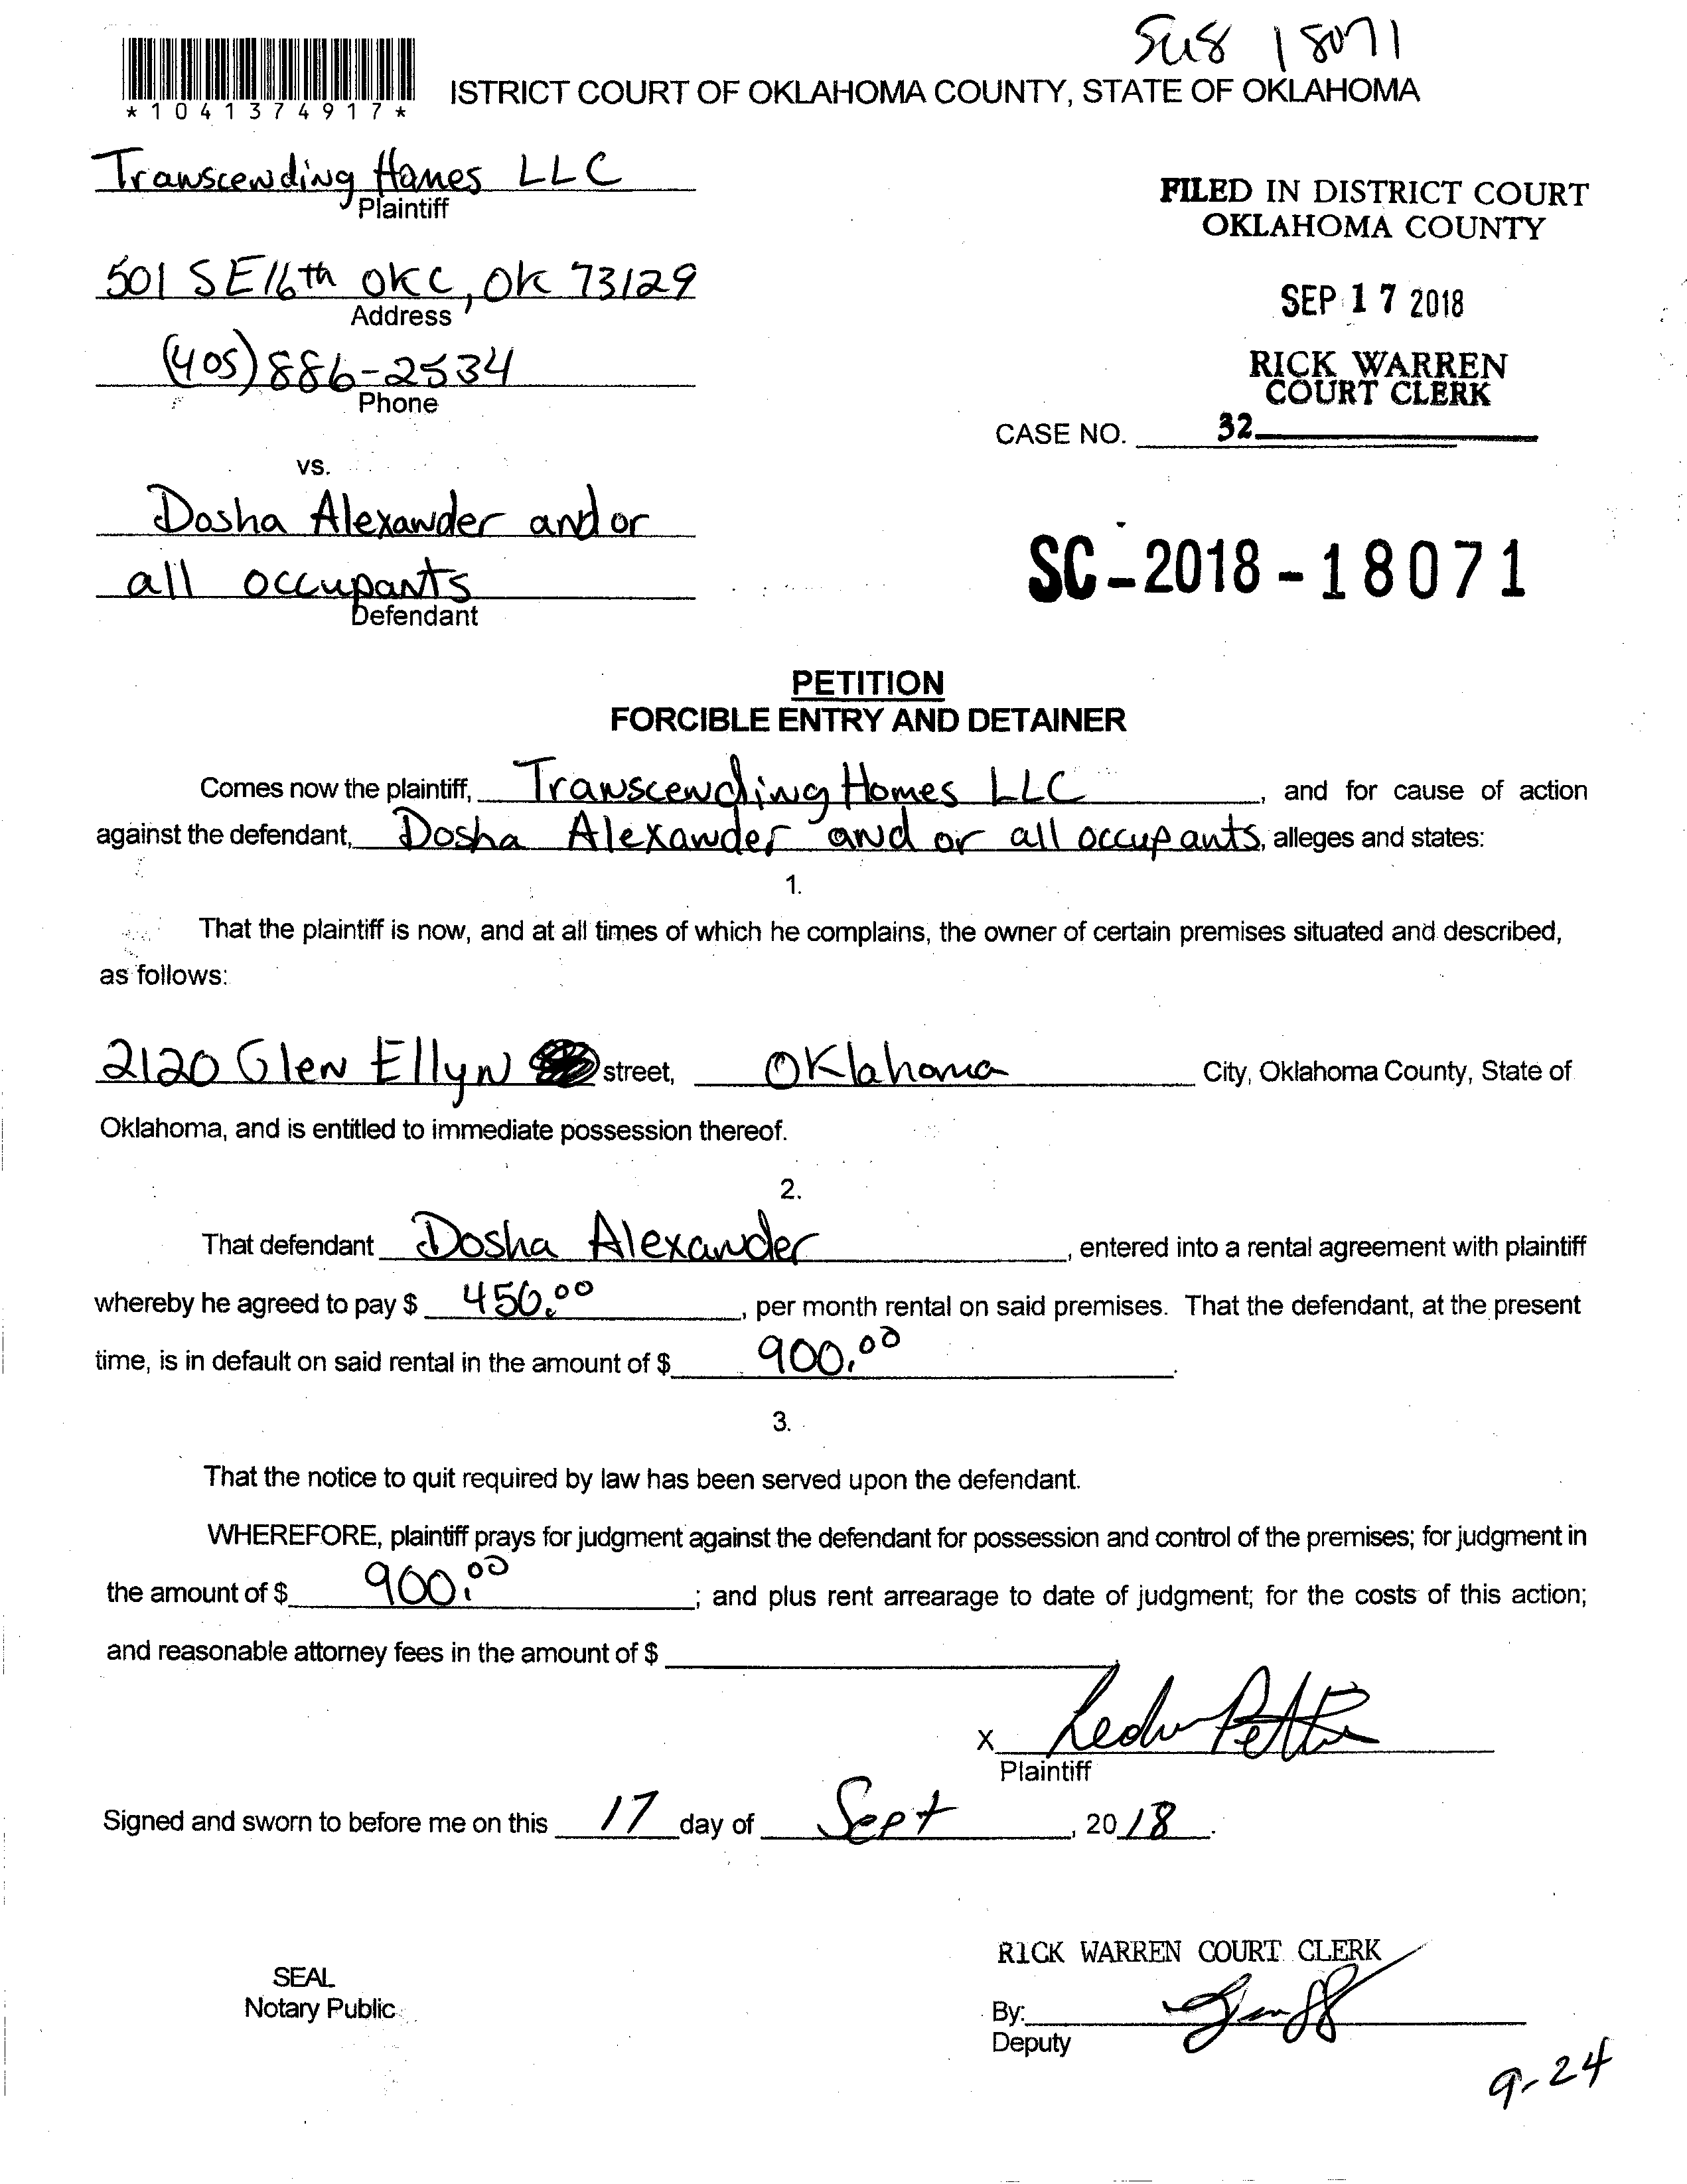 18071
*1041374917*
ISTRICT COURT OF OKLAHOMA COUNTY, STATE OF OKLAHOMA
Transcending Homes LLC
Plaintiff
FILED IN DISTRICT COURT
OKLAHOMA COUNTY
501 SE 16th OKC, OK 73129
Address
SEP 17 2018
(405) 886-2534
Phone
RICK WARREN
COURT CLERK
CASE NO. 32
vs.
Dosha Alexander and or
all occupants
Defendant
SC-2018-18071
PETITION
FORCIBLE ENTRY AND DETAINER
Comes now the plaintiff, Transcending Homes LLC, and for cause of action
against the defendant, Dosha Alexander and or all occupants, alleges and states:
1.
That the plaintiff is now, and at all times of which he complains, the owner of certain premises situated and described,
as follows:
2120 Glen Ellyn street, Oklahoma City, Oklahoma County, State of
Oklahoma, and is entitled to immediate possession thereof.
2.
That defendant Dosha Alexander, entered into a rental agreement with plaintiff
whereby he agreed to pay $ 450.00, per month rental on said premises. That the defendant, at the present
time, is in default on said rental in the amount of $ 900.00.
3.
That the notice to quit required by law has been served upon the defendant.
WHEREFORE, plaintiff prays for judgment against the defendant for possession and control of the premises; for judgment in
the amount of $ 900.00; and plus rent arrearage to date of judgment; for the costs of this action;
and reasonable attorney fees in the amount of $
X
Plaintiff
Signed and sworn to before me on this 17 day of Sept, 2018.
RICK WARREN COURT CLERK
SEAL
Notary Public
By:
Deputy
9-24